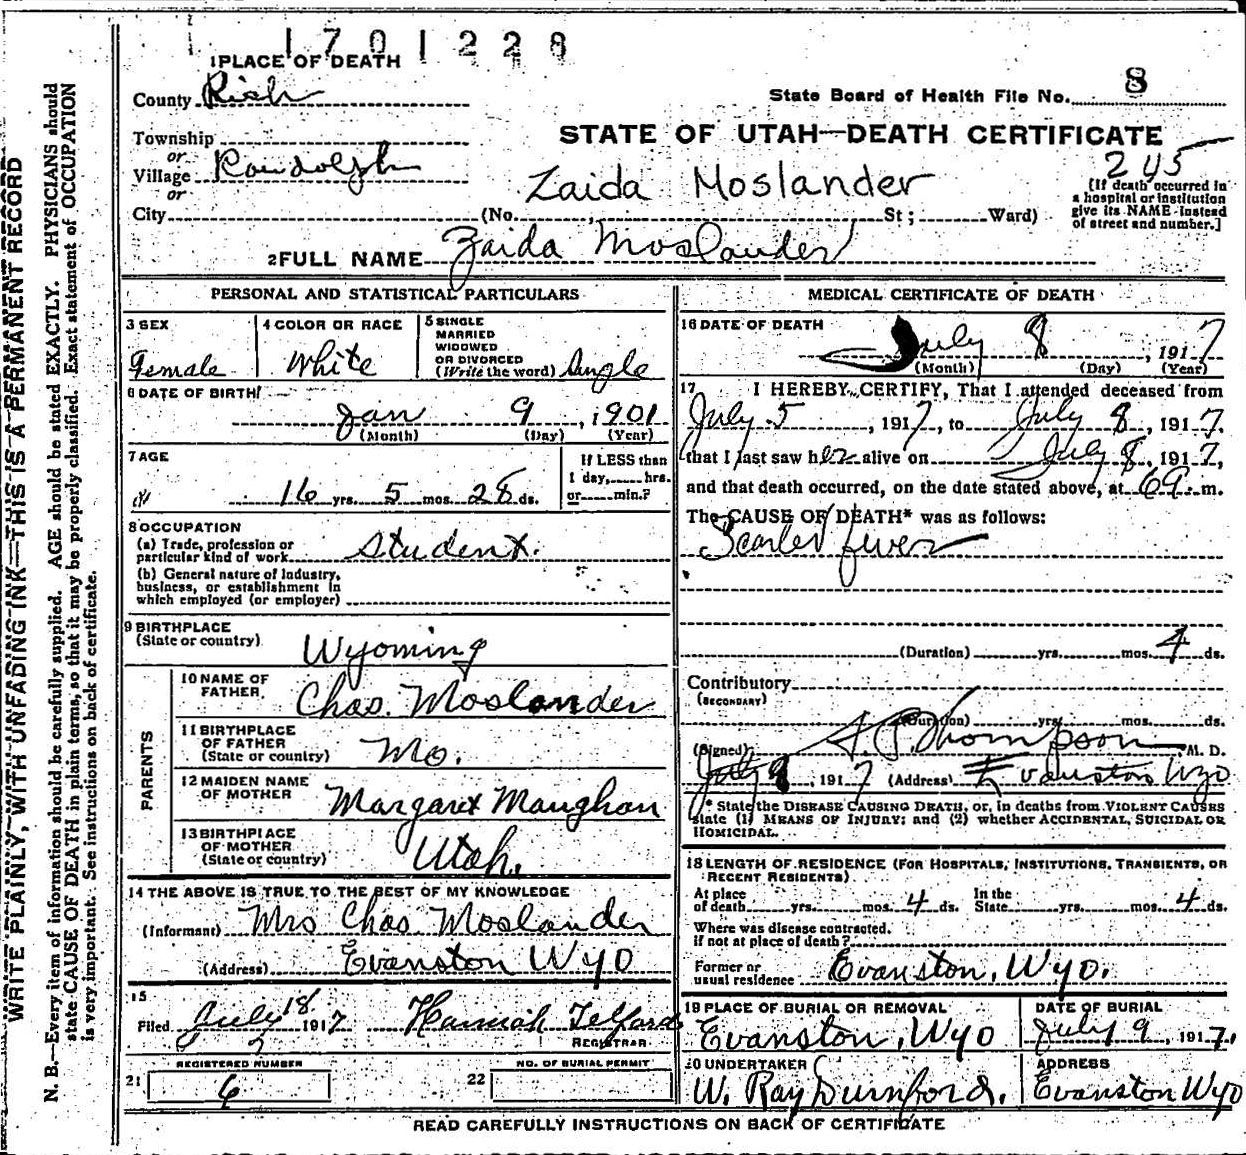 1701228
1 PLACE OF DEATH
County Rich
State Board of Health File No. 8
Township
or
Village Randolph
or
STATE OF UTAH—DEATH CERTIFICATE
245
Zaida Moslander
City (No. , St; Ward)
(If death occurred in
a hospital or institution
give its NAME instead
of street and number.]
2 FULL NAME Zaida Moslander
PERSONAL AND STATISTICAL PARTICULARS
3 SEX
Female
4 COLOR OR RACE
White
5 SINGLE
MARRIED
WIDOWED
OR DIVORCED
(Write the word) Single
6 DATE OF BIRTH
Jan 9, 1901
(Month) (Day) (Year)
7 AGE
16 yrs. 5 mos. 28 ds.
If LESS than
1 day, hrs.
or min.?
8 OCCUPATION
(a) Trade, profession or
particular kind of work Student.
(b) General nature of Industry,
business, or establishment in
which employed (or employer)
9 BIRTHPLACE
(State or country) Wyoming
PARENTS
10 NAME OF
FATHER, Chas. Moslander
11 BIRTHPLACE
OF FATHER
(State or country) Mo.
12 MAIDEN NAME
OF MOTHER Margaret Maughan
13 BIRTHPLACE
OF MOTHER
(State or country) Utah.
14 THE ABOVE IS TRUE TO THE BEST OF MY KNOWLEDGE
(Informant) Mrs Chas Moslander
(Address) Evanston Wyo
15
Filed July 18 1917 Hannah Telford
REGISTRAR
REGISTERED NUMBER
21 6
NO. OF BURIAL PERMIT
22
MEDICAL CERTIFICATE OF DEATH
16 DATE OF DEATH
July 8, 1917
(Month) (Day) (Year)
17 I HEREBY CERTIFY, That I attended deceased from
July 5, 1917, to July 8, 1917,
that I last saw her alive on July 8, 1917,
and that death occurred, on the date stated above, at 6 a.m.
The CAUSE OF DEATH* was as follows:
Scarlet fever
(Duration) yrs. mos. 4 ds.
Contributory
(SECONDARY)
(Duration) yrs. mos. ds.
(Signed) Thompson M. D.
July 8, 1917 (Address) Evanston Wyo
* State the DISEASE CAUSING DEATH, or, in deaths from VIOLENT CAUSES
state (1) MEANS OF INJURY; and (2) whether ACCIDENTAL, SUICIDAL OR
HOMICIDAL.
18 LENGTH OF RESIDENCE (FOR HOSPITALS, INSTITUTIONS, TRANSIENTS, OR
RECENT RESIDENTS)
At place
of death yrs. mos. 4 ds.
In the
State yrs. mos. 4 ds.
Where was disease contracted.
if not at place of death?
Former or
usual residence Evanston, Wyo.
19 PLACE OF BURIAL OR REMOVAL
Evanston, Wyo
DATE OF BURIAL
July 9, 1917,
20 UNDERTAKER
W. Ray Durnford.
ADDRESS
Evanston Wyo
READ CAREFULLY INSTRUCTIONS ON BACK OF CERTIFICATE
WRITE PLAINLY, WITH UNFADING INK—THIS IS A PERMANENT RECORD
N. B.—Every item of information should be carefully supplied. AGE should be stated EXACTLY. PHYSICIANS should
state CAUSE OF DEATH in plain terms, so that it may be properly classified. Exact statement of OCCUPATION
is very important. See instructions on back of certificate.